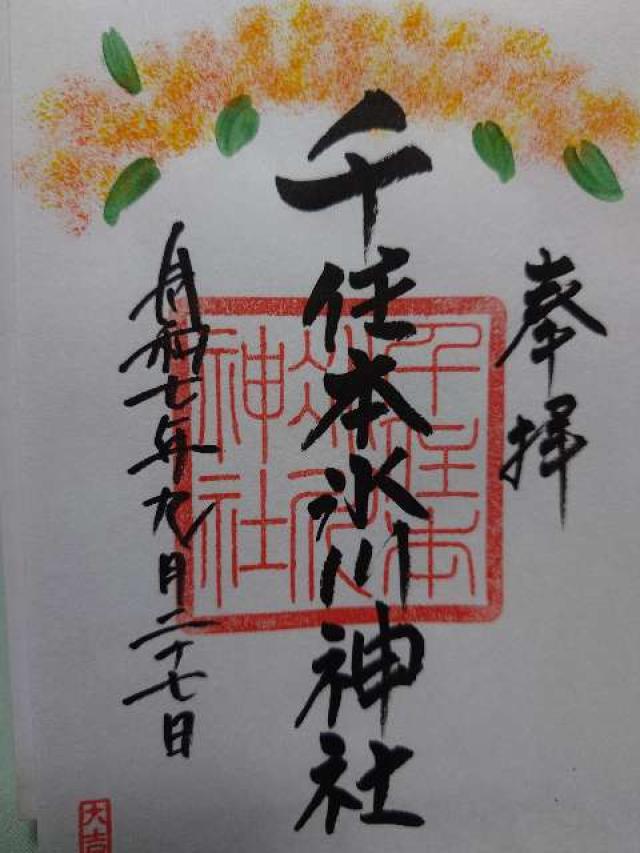 奉拝
千住本氷川神社
千住本
氷川
神社
令和七年九月二十七日
大吉